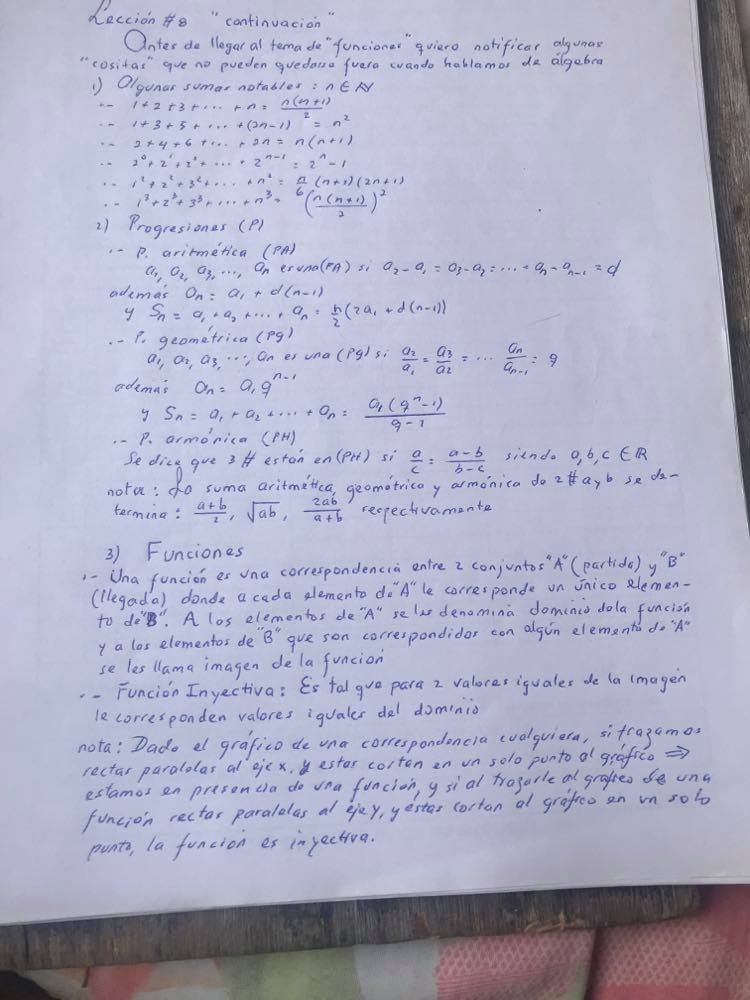 Lección #8 "continuación"
Antes de llegar al tema de "funciones" quiero notificar algunas
"cositas" que no pueden quedarse fuera cuando hablamos de álgebra
1) Algunas sumas notables : n ∈ N
.- 1+2+3+...+n = n(n+1)/2
.- 1+3+5+...+(2n-1) = n²
.- 2+4+6+...+2n = n(n+1)
.- 2⁰+2¹+2²+...+2ⁿ⁻¹ = 2ⁿ-1
.- 1²+2²+3²+...+n² = n/6 (n+1)(2n+1)
.- 1³+2³+3³+...+n³ = (n(n+1)/2)²
2) Progresiones (P)
.- P. aritmética (PA)
a₁, a₂, a₃, ..., aₙ es una (PA) si a₂-a₁ = a₃-a₂ = ... = aₙ-aₙ₋₁ = d
además aₙ = a₁ + d(n-1)
y Sₙ = a₁+a₂+...+aₙ = n/2 (2a₁ + d(n-1))
.- P. geométrica (Pg)
a₁, a₂, a₃, ..., aₙ es una (Pg) si a₂/a₁ = a₃/a₂ = ... aₙ/aₙ₋₁ = q
además aₙ = a₁qⁿ⁻¹
y Sₙ = a₁+a₂+...+aₙ = a₁(qⁿ-1)/q-1
.- P. armónica (PH)
Se dice que 3 # están en (PH) si a/c = a-b/b-c siendo a,b,c ∈ R
nota: La suma aritmética, geométrica y armónica de 2 # a y b se de-
termina : a+b/2, √ab, 2ab/a+b respectivamente
3) Funciones
.- Una función es una correspondencia entre 2 conjuntos "A" (partida) y "B"
(llegada) donde a cada elemento de "A" le corresponde un único elemen-
to de "B". A los elementos de "A" se les denomina dominio de la función
y a los elementos de "B" que son correspondidos con algún elemento de "A"
se les llama imagen de la función
.- Función Inyectiva : Es tal que para 2 valores iguales de la imagen
le corresponden valores iguales del dominio
nota: Dado el gráfico de una correspondencia cualquiera, si trazamos
rectas paralelas al eje x, y estas cortan en un solo punto al gráfico ⇒
estamos en presencia de una función, y si al trazarle al gráfico de una
función rectas paralelas al eje y, y éstas cortan al gráfico en un solo
punto, la función es inyectiva.